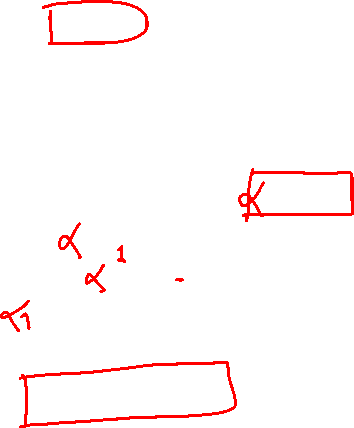 α
α
α 1
α1